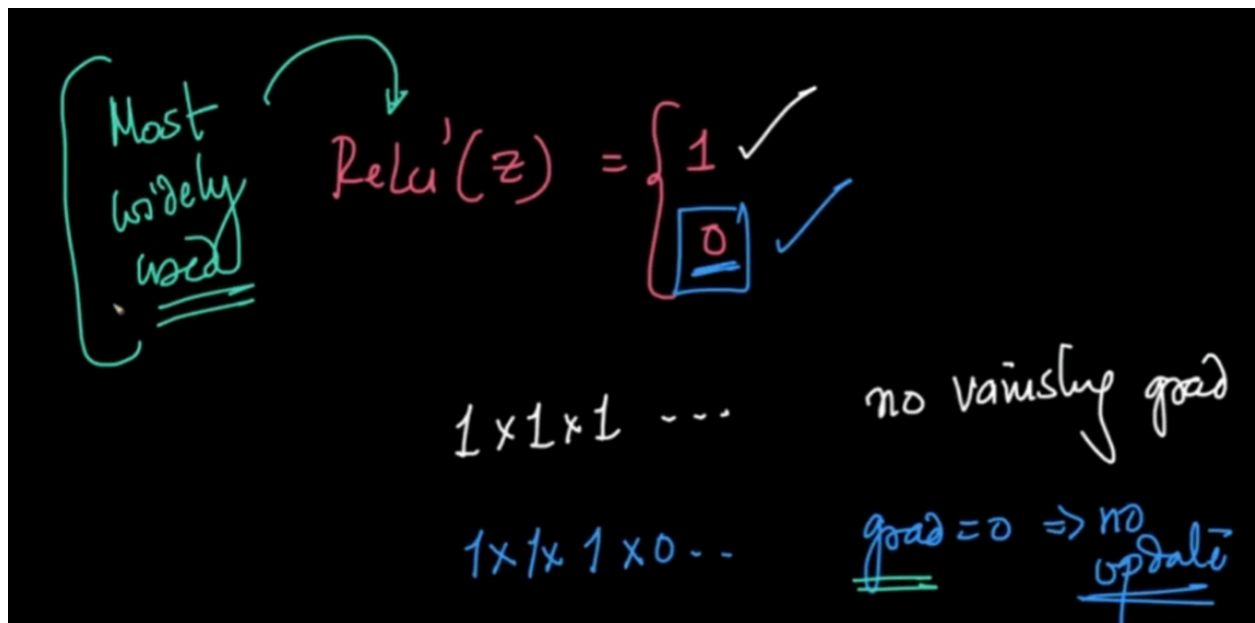 Most
widely
used
Relu'(z) = { 1
0
1 x 1 x 1 ---
no vanishing grad
1 x 1 x 1 x 0 - - -
grad = 0 => no
update